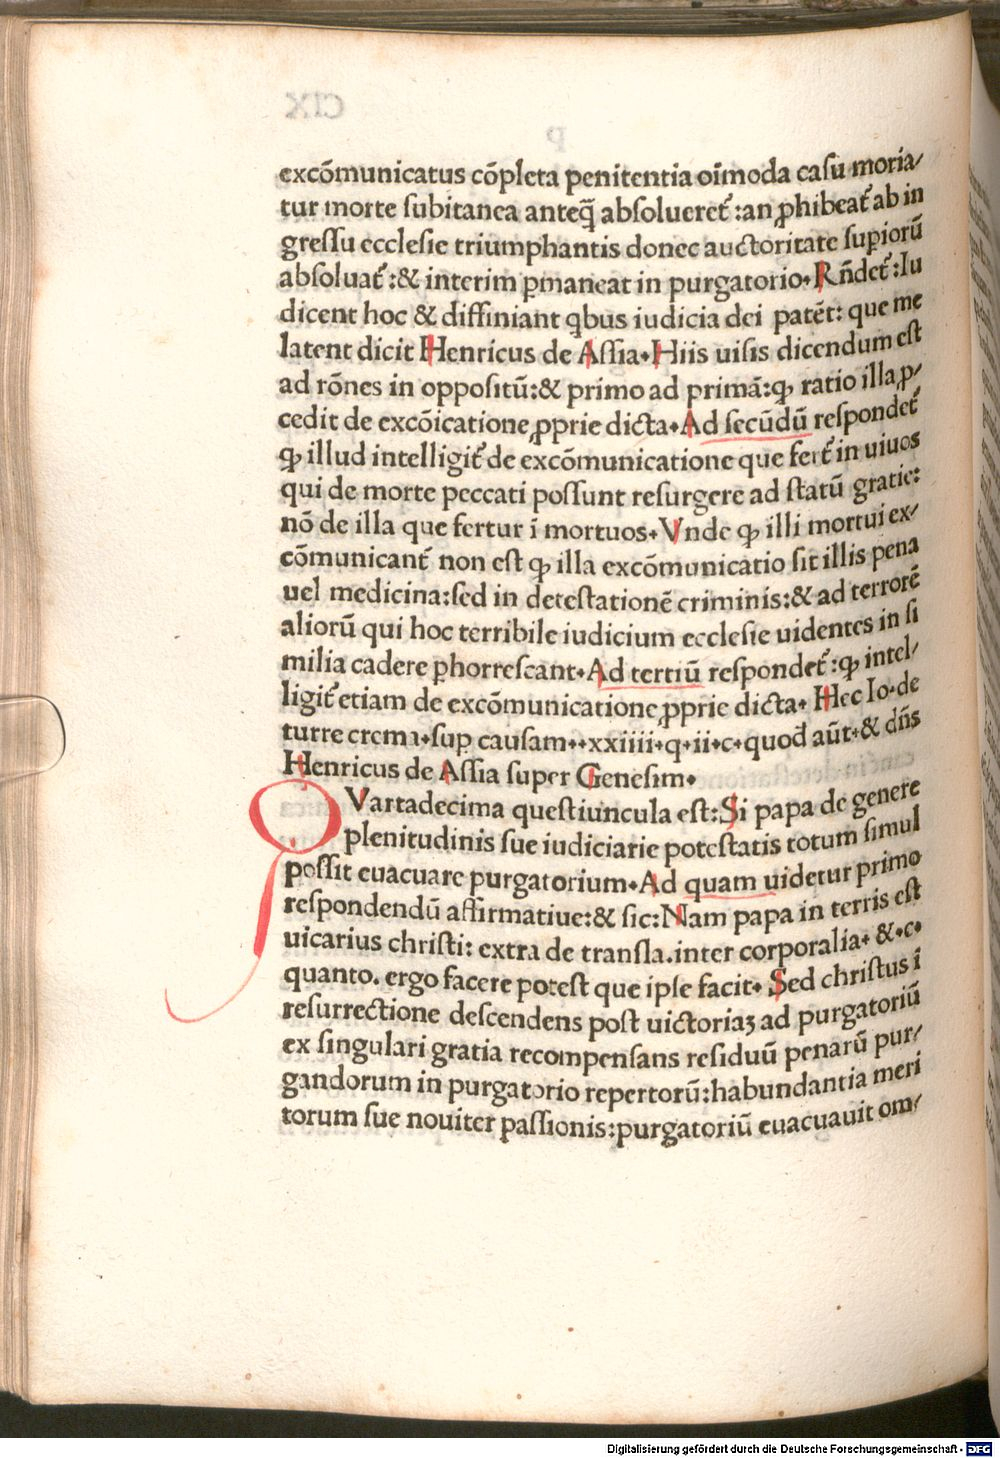 excõmunicatus cõpleta penitentia oĩmoda casu moria/
tur morte subitanea anteq̃ absolueret᷑ :an ꝓhibeat᷑ ab in
gressu ecclesie triumphantis donec auctoritate supioꝝ̃
absoluat᷑ :& interim ꝑmaneat in purgatorio. Rñdet᷑ :Iu
dicent hoc & diffiniant qbus iudicia dei patẽt: que me
latent dicit Henricus de Assia. Hiis uisis dicendum est
ad rõnes in oppositũ:& primo ad primã:ꝙ ratio illa ꝓ/
cedit de excõicatione ꝓprie dicta. Ad secũdũ respondet᷑
ꝙ illud intelligit᷑ de excõmunicatione que fert᷑ in uiuos
qui de morte peccati possunt resurgere ad statũ gratie:
nõ de illa que fertur ĩ mortuos. Vnde ꝙ illi mortui ex/
cõmunicant᷑ non est ꝙ illa excõmunicatio sit illis pena
uel medicina:sed in detestationẽ criminis:& ad terrorẽ
aliorũ qui hoc terribile iudicium ecclesie uidentes in si
milia cadere ꝑhorrescant. Ad tertiũ respondet᷑ :ꝙ intel/
ligit᷑ etiam de excõmunicatione ꝓprie dicta. Hec Io.de
turre crema.suꝑ causam..xxiiii.q.ii.c.quod aũt.& dñs
Henricus de Assia super Genesim.
QVartadecima questiuncula est:Si papa de genere
plenitudinis sue iudiciarie potestatis totum simul
possit euacuare purgatorium. Ad quam uidetur primo
respondendũ affirmatiue:& sic:Nam papa in terris est
uicarius christi: extra de transla.inter corporalia. &.c.
quanto. ergo facere potest que ipse facit. Sed christus ĩ
resurrectione descendens post uictoriaꝫ ad purgatoriũ
ex singulari gratia recompensans residuũ penarũ pur/
gandorum in purgatorio repertorũ:habundantia meri
torum sue nouiter passionis:purgatoriũ euacuauit om/
Digitalisierung gefördert durch die Deutsche Forschungsgemeinschaft - DFG